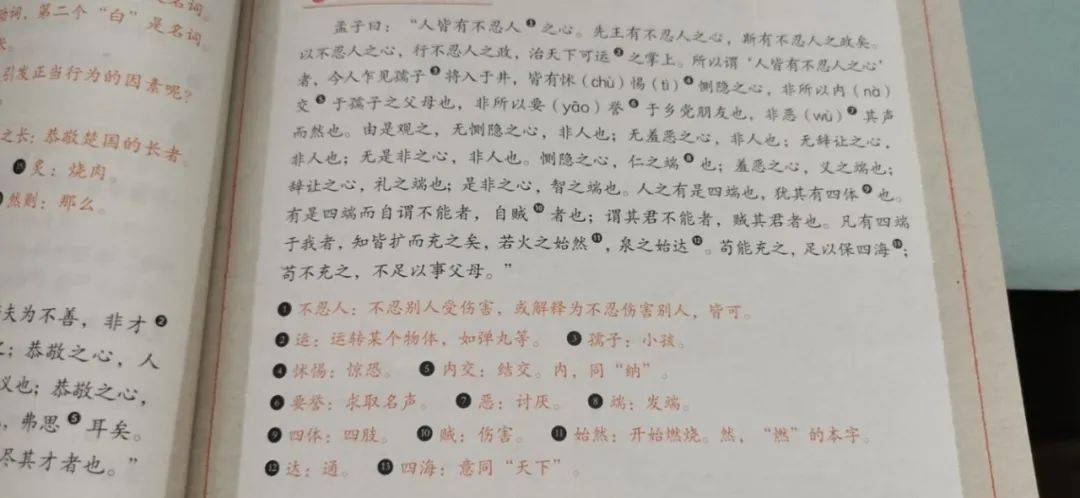 名词。
动词，第二个“白”是名词。
引发正当行为的因素呢？
之长：恭敬楚国的长者。
⑮炙：烧肉。
然则：那么。
夫为不善，非才❷
；恭敬之心，人
义也；恭敬之心，
，弗思❺耳矣。
尽其才者也。”
孟子曰：“人皆有不忍人❶之心。先王有不忍人之心，斯有不忍人之政矣。
以不忍人之心，行不忍人之政，治天下可运❷之掌上。所以谓‘人皆有不忍人之心’
者，今人乍见孺子❸将入于井，皆有怵（chù）惕（tì）❹恻隐之心，非所以内（nà）
交❺于孺子之父母也，非所以要（yāo）誉❻于乡党朋友也，非恶（wù）❼其声
而然也。由是观之，无恻隐之心，非人也；无羞恶之心，非人也；无辞让之心，
非人也；无是非之心，非人也。恻隐之心，仁之端❽也；羞恶之心，义之端也；
辞让之心，礼之端也；是非之心，智之端也。人之有是四端也，犹其有四体❾也。
有是四端而自谓不能者，自贼❿者也；谓其君不能者，贼其君者也。凡有四端
于我者，知皆扩而充之矣，若火之始然⓫，泉之始达⓬。苟能充之，足以保四海⓭；
苟不充之，不足以事父母。”
❶不忍人：不忍别人受伤害，或解释为不忍伤害别人，皆可。
❷运：运转某个物体，如弹丸等。 ❸孺子：小孩。
❹怵惕：惊恐。 ❺内交：结交。内，同“纳”。
❻要誉：求取名声。 ❼恶：讨厌。 ❽端：发端。
❾四体：四肢。 ❿贼：伤害。 ⓫始然：开始燃烧。然，“燃”的本字。
⓬达：通。 ⓭四海：意同“天下”。